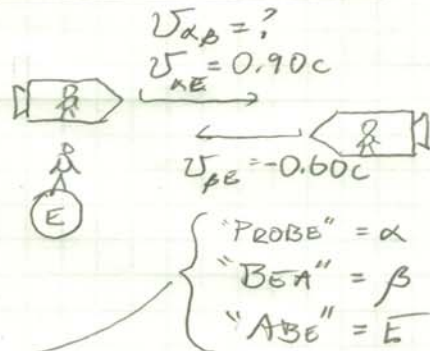 v_αβ = ?
v_αE = 0.90c
v_βE = -0.60c
E
"PROBE" = α
"BEA" = β
"ABE" = E